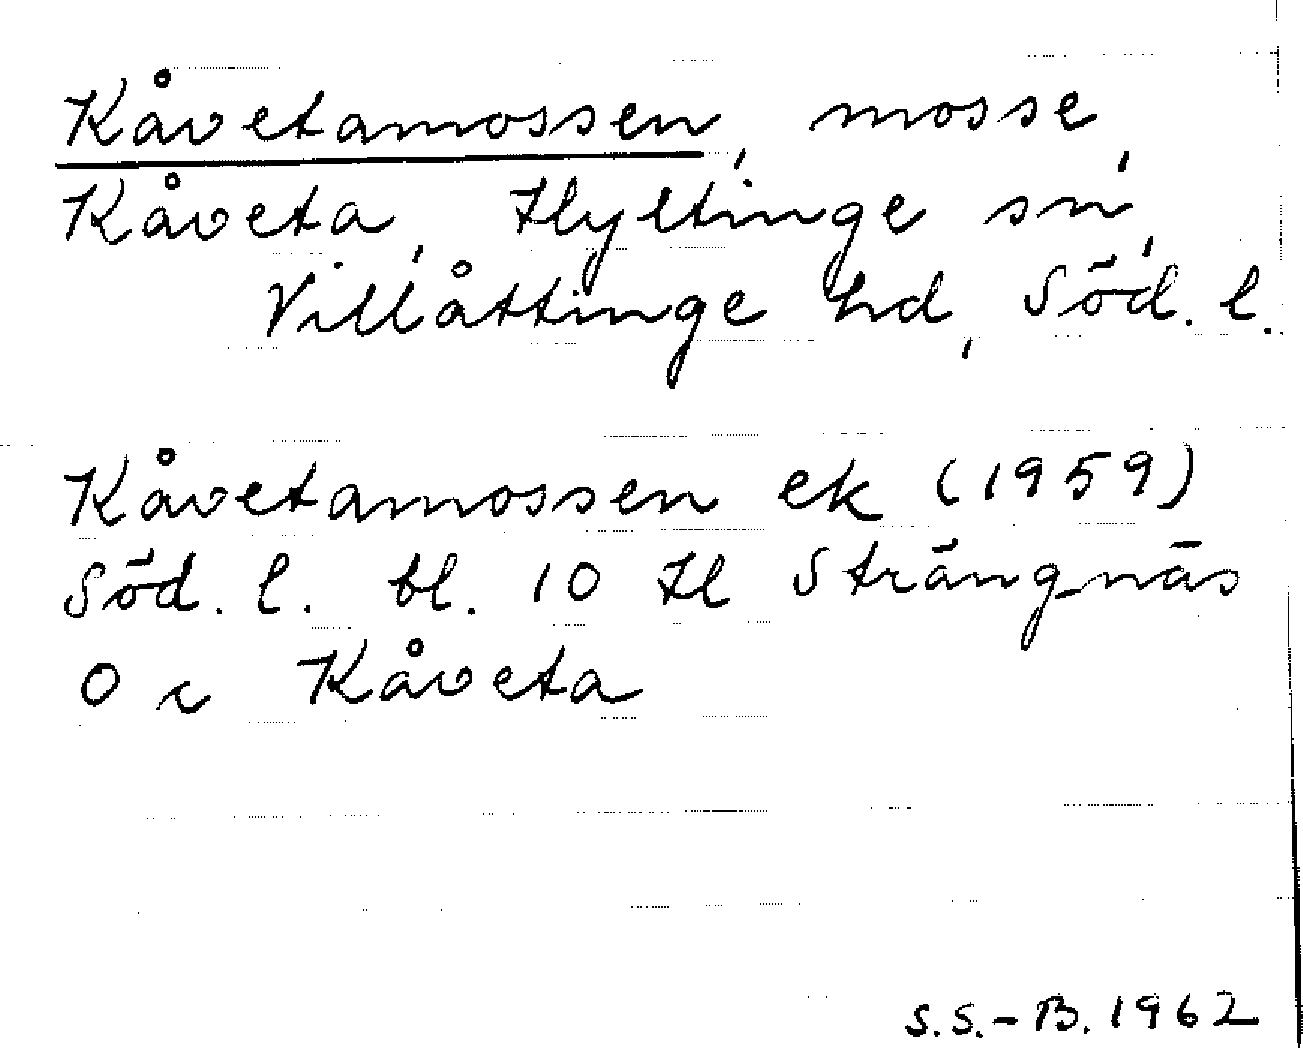 Kåvetamossen, mosse,
Kåveta, Hyltinge sn,
Villåttinge hd, Söd. l.
Kåvetamossen ek (1959)
Söd. l. bl. 10 H Strängnäs
O i Kåveta
S.S.-B. 1962